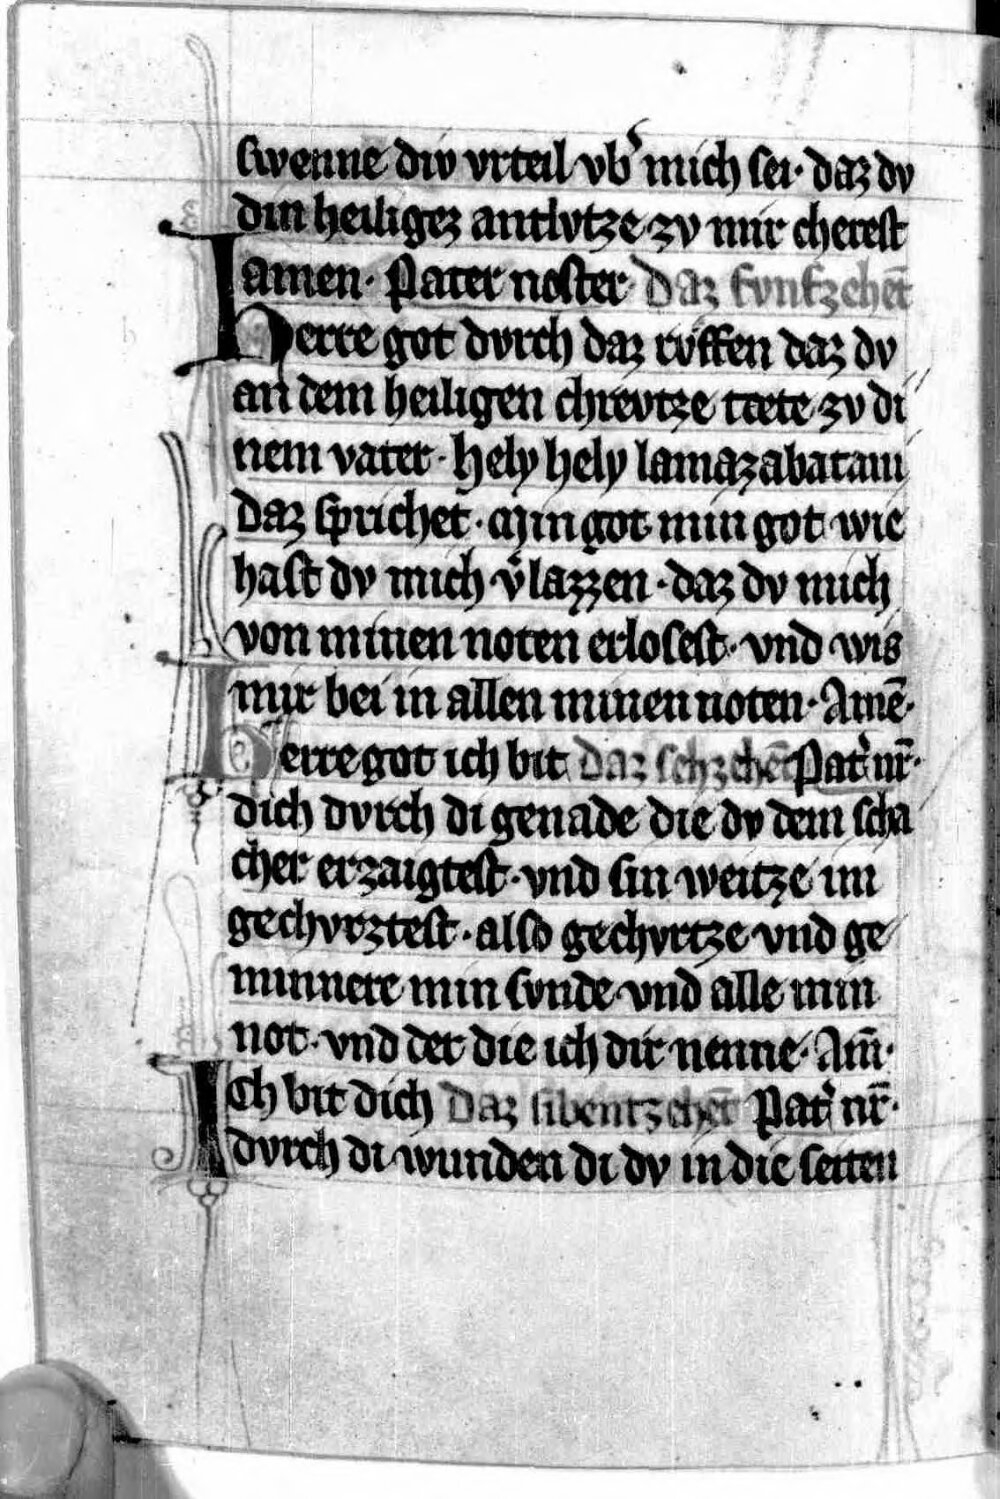 swenne div vrteil vb᷑ mich sei· daz dv
din heiligez antlvtze zv mir cherest
amen· Pater noster Daz fvnfzehēt
Herre got dvrch daz rv̊ffen daz dv
an dem heiligen chrevtze tæte zv di
nem vater· hely hely lamazabatani
Daz sprichet· Min got min got wie
hast dv mich v᷑lazzen· daz dv mich
von minen noten erlosest· vnd wis
mir bei in allen minen noten· Amē·
Herre got ich bit Daz sehzehēt Pat᷑ nr̄·
dich dvrch di genade die dv dem scha
cher erzaigtest· vnd sin weitze im
gechvrztest· also gechvrtze vnd ge
minnere min svnde vnd alle min
not· vnd der die ich dir nenne· Am̄·
Ich bit dich Daz sibentzehēt Pat᷑ nr̄·
dvrch di wunden di dv in die seiten